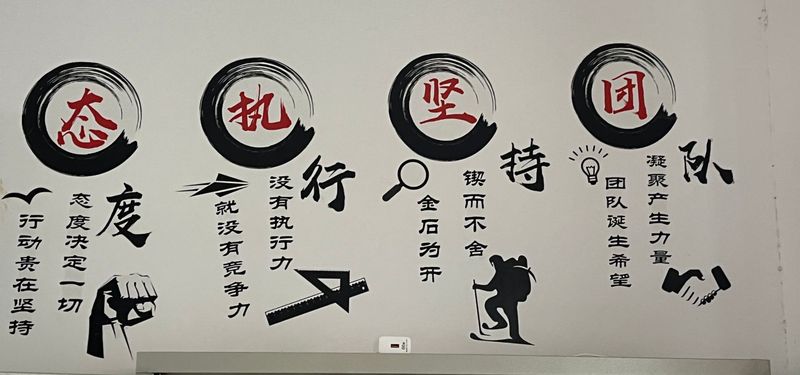 态度
态度决定一切
行动贵在坚持
执行
没有执行力
就没有竞争力
坚持
锲而不舍
金石为开
团队
凝聚产生力量
团队诞生希望